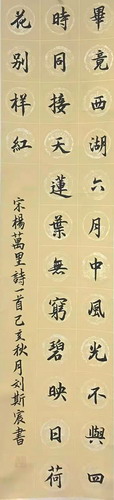 畢竟西湖六月中風光不與四
時同接天蓮葉無窮碧映日荷
花别樣紅
宋楊萬里詩一首己亥秋月刘斯宸書